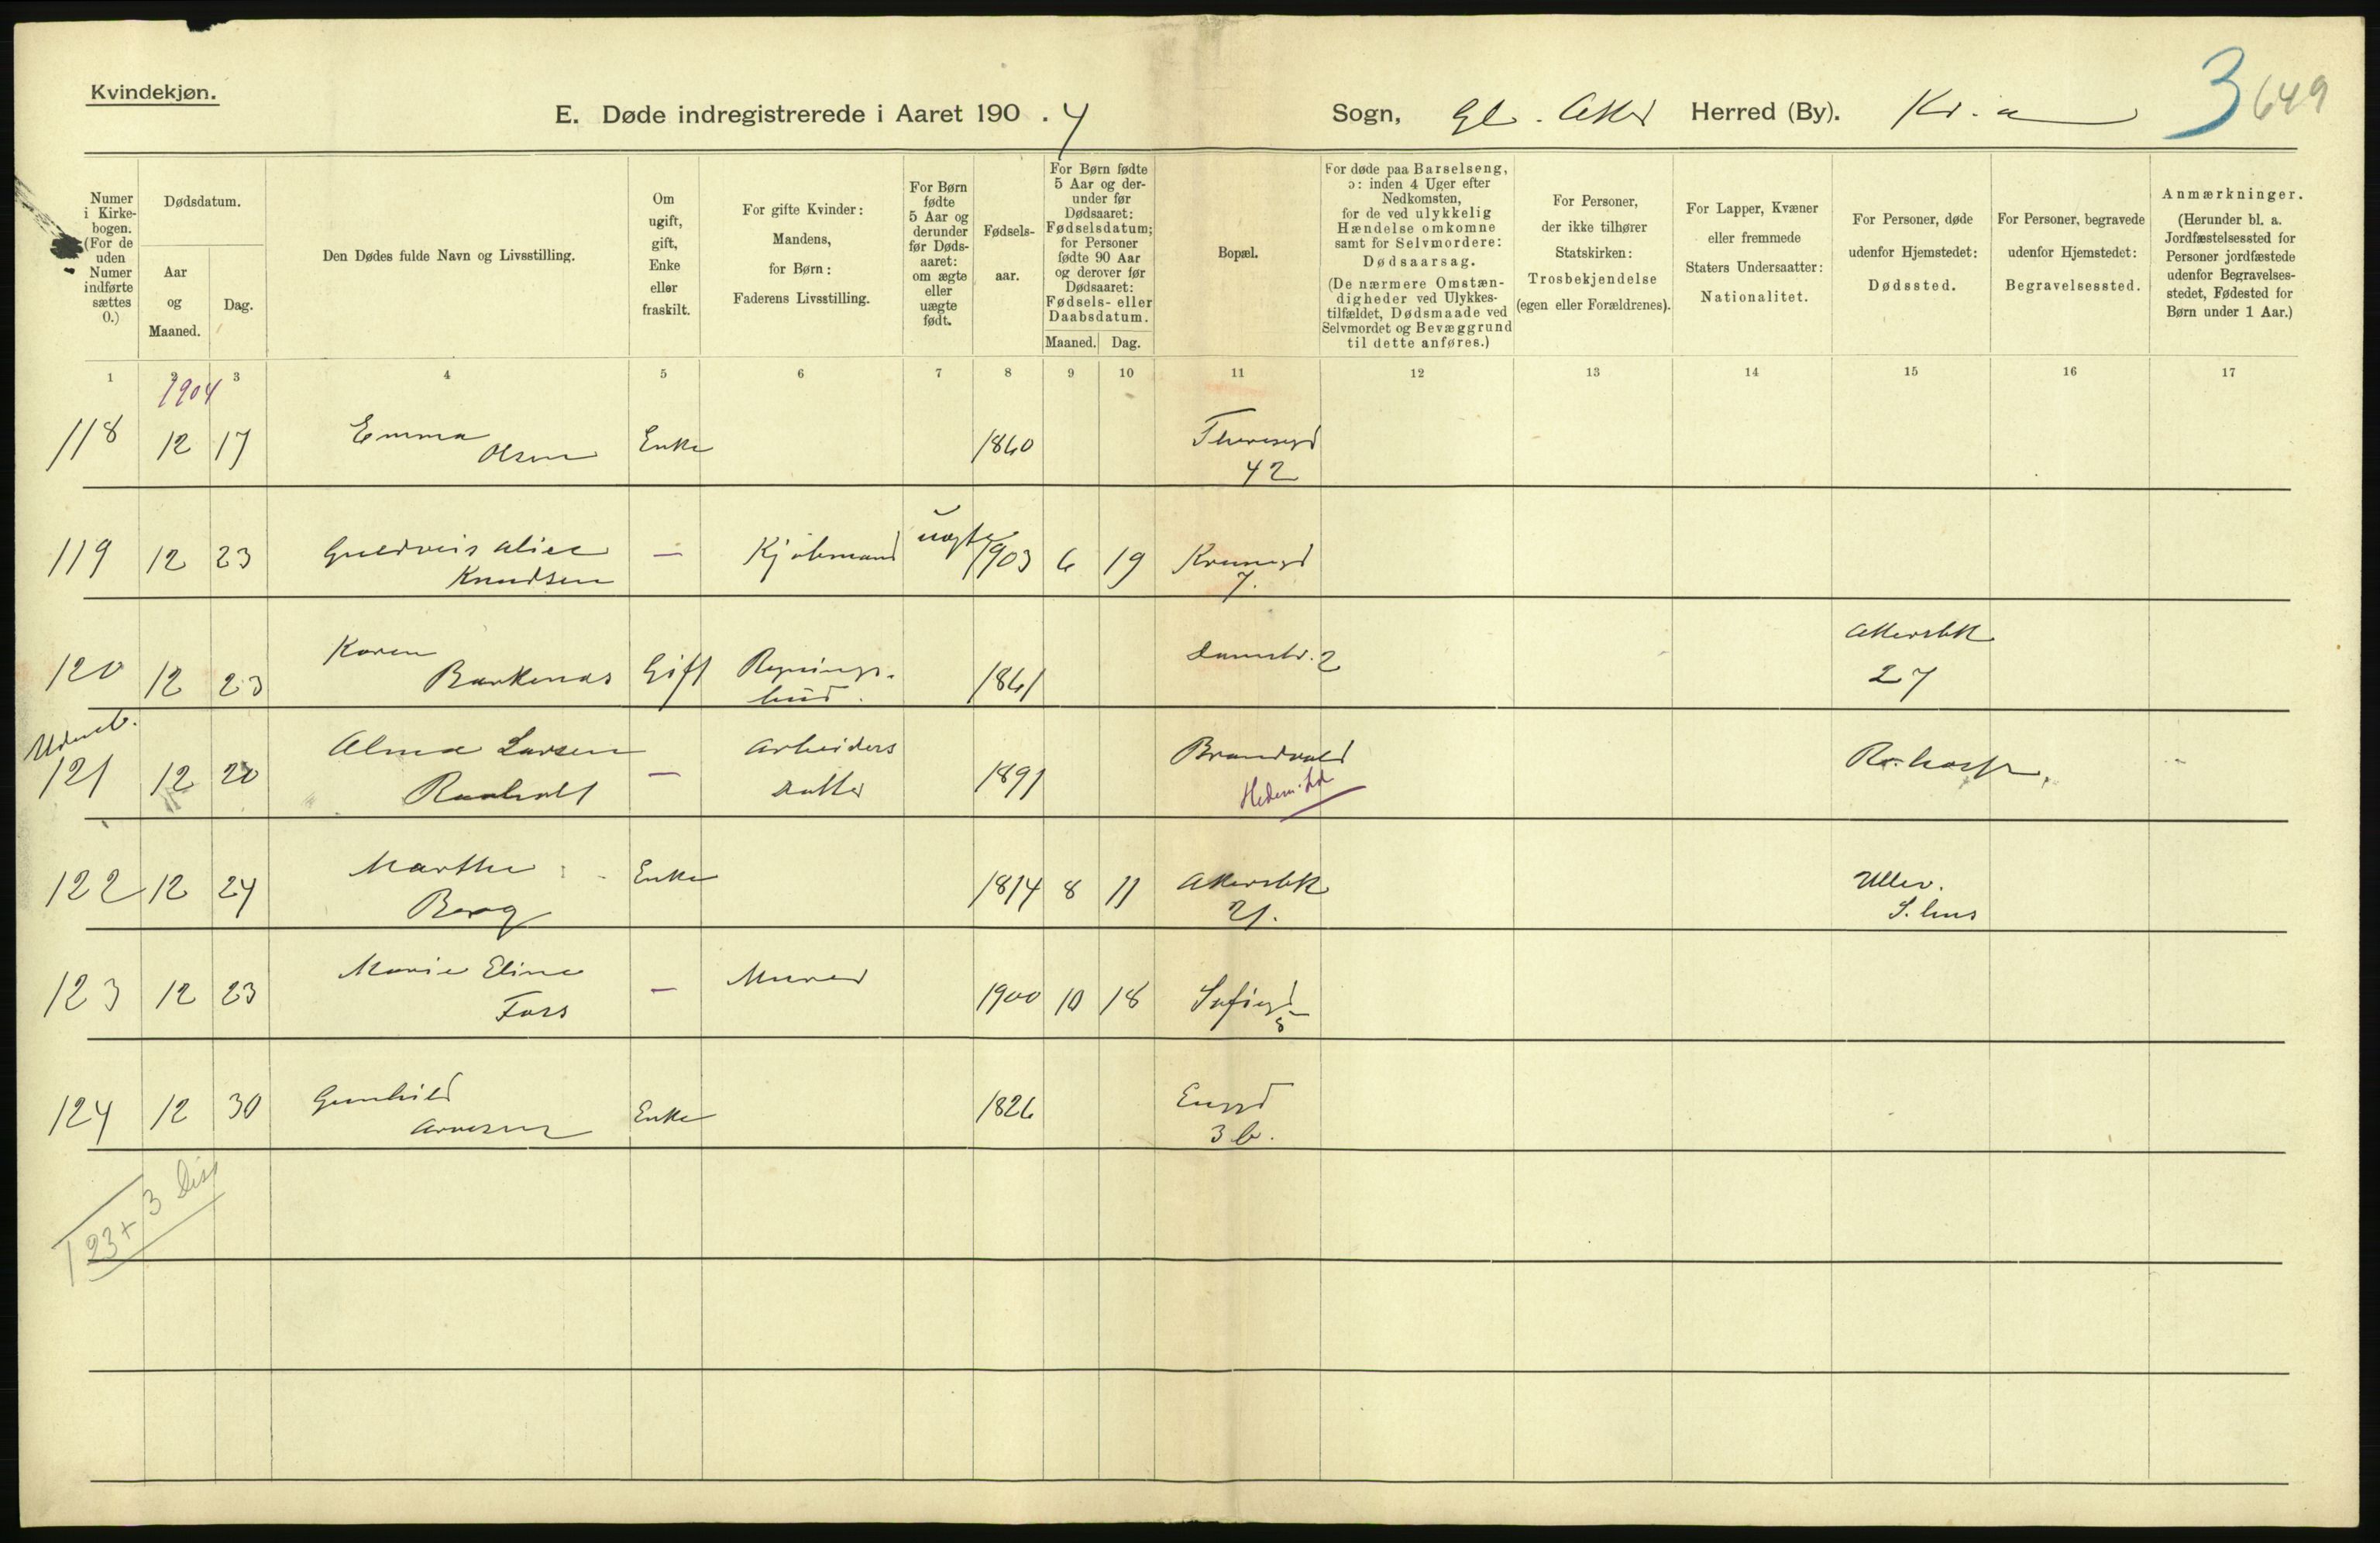 Kvindekjøn.
E. Døde indregistrerede i Aaret 190 . 4 Sogn, Gl. Aker Herred (By). Kr.a 3 649
Numer i Kirkebogen. (For de uden Numer indførte sættes 0.)
Dødsdatum.
Aar og Maaned.
Dag.
Den Dødes fulde Navn og Livsstilling.
Om ugift, gift, Enke eller fraskilt.
For gifte Kvinder: Mandens, for Børn: Faderens Livsstilling.
For Børn fødte 5 Aar og derunder før Dødsaaret: om ægte eller uægte født.
Fødselsaar.
For Børn fødte 5 Aar og derunder før Dødsaaret: Fødselsdatum; for Personer fødte 90 Aar og derover før Dødsaaret: Fødsels- eller Daabsdatum.
Maaned. Dag.
Bopæl.
For døde paa Barselseng, ɔ: inden 4 Uger efter Nedkomsten, for de ved ulykkelig Hændelse omkomne samt for Selvmordere: Dødsaarsag.
(De nærmere Omstændigheder ved Ulykkestilfældet, Dødsmaade ved Selvmordet og Bevæggrund til dette anføres.)
For Personer, der ikke tilhører Statskirken: Trosbekjendelse (egen eller Forældrenes).
For Lapper, Kvæner eller fremmede Staters Undersaatter: Nationalitet.
For Personer, døde udenfor Hjemstedet: Dødssted.
For Personer, begravede udenfor Hjemstedet: Begravelsessted.
Anmærkninger. (Herunder bl. a. Jordfæstelsessted for Personer jordfæstede udenfor Begravelsesstedet, Fødested for Børn under 1 Aar.)
1 2 3 4 5 6 7 8 9 10 11 12 13 14 15 16 17
1904
118 12 17 Emma Olsen Enke 1860 Theresesgd 42
119 12 23 Guldveis Alice Knudsen — Kjøbmand uægte 1903 6 19 7.
120 12 23 Karen Gift 1861 2 Akersbk 27
121 12 20 Alma Larsen — Arbeiders datter 1891 Brandvold Hedem. R.hosp.
122 12 24 Marthe Berg Enke 1814 8 11 Akersbk 21. Ullev. S.hus
123 12 23 Marie Eline Foss — Murer 1900 10 18 Sofiesgd 8
124 12 30 Gunhild Arnesen Enke 1826 Enggd 3 b.
123 + 3 Dis